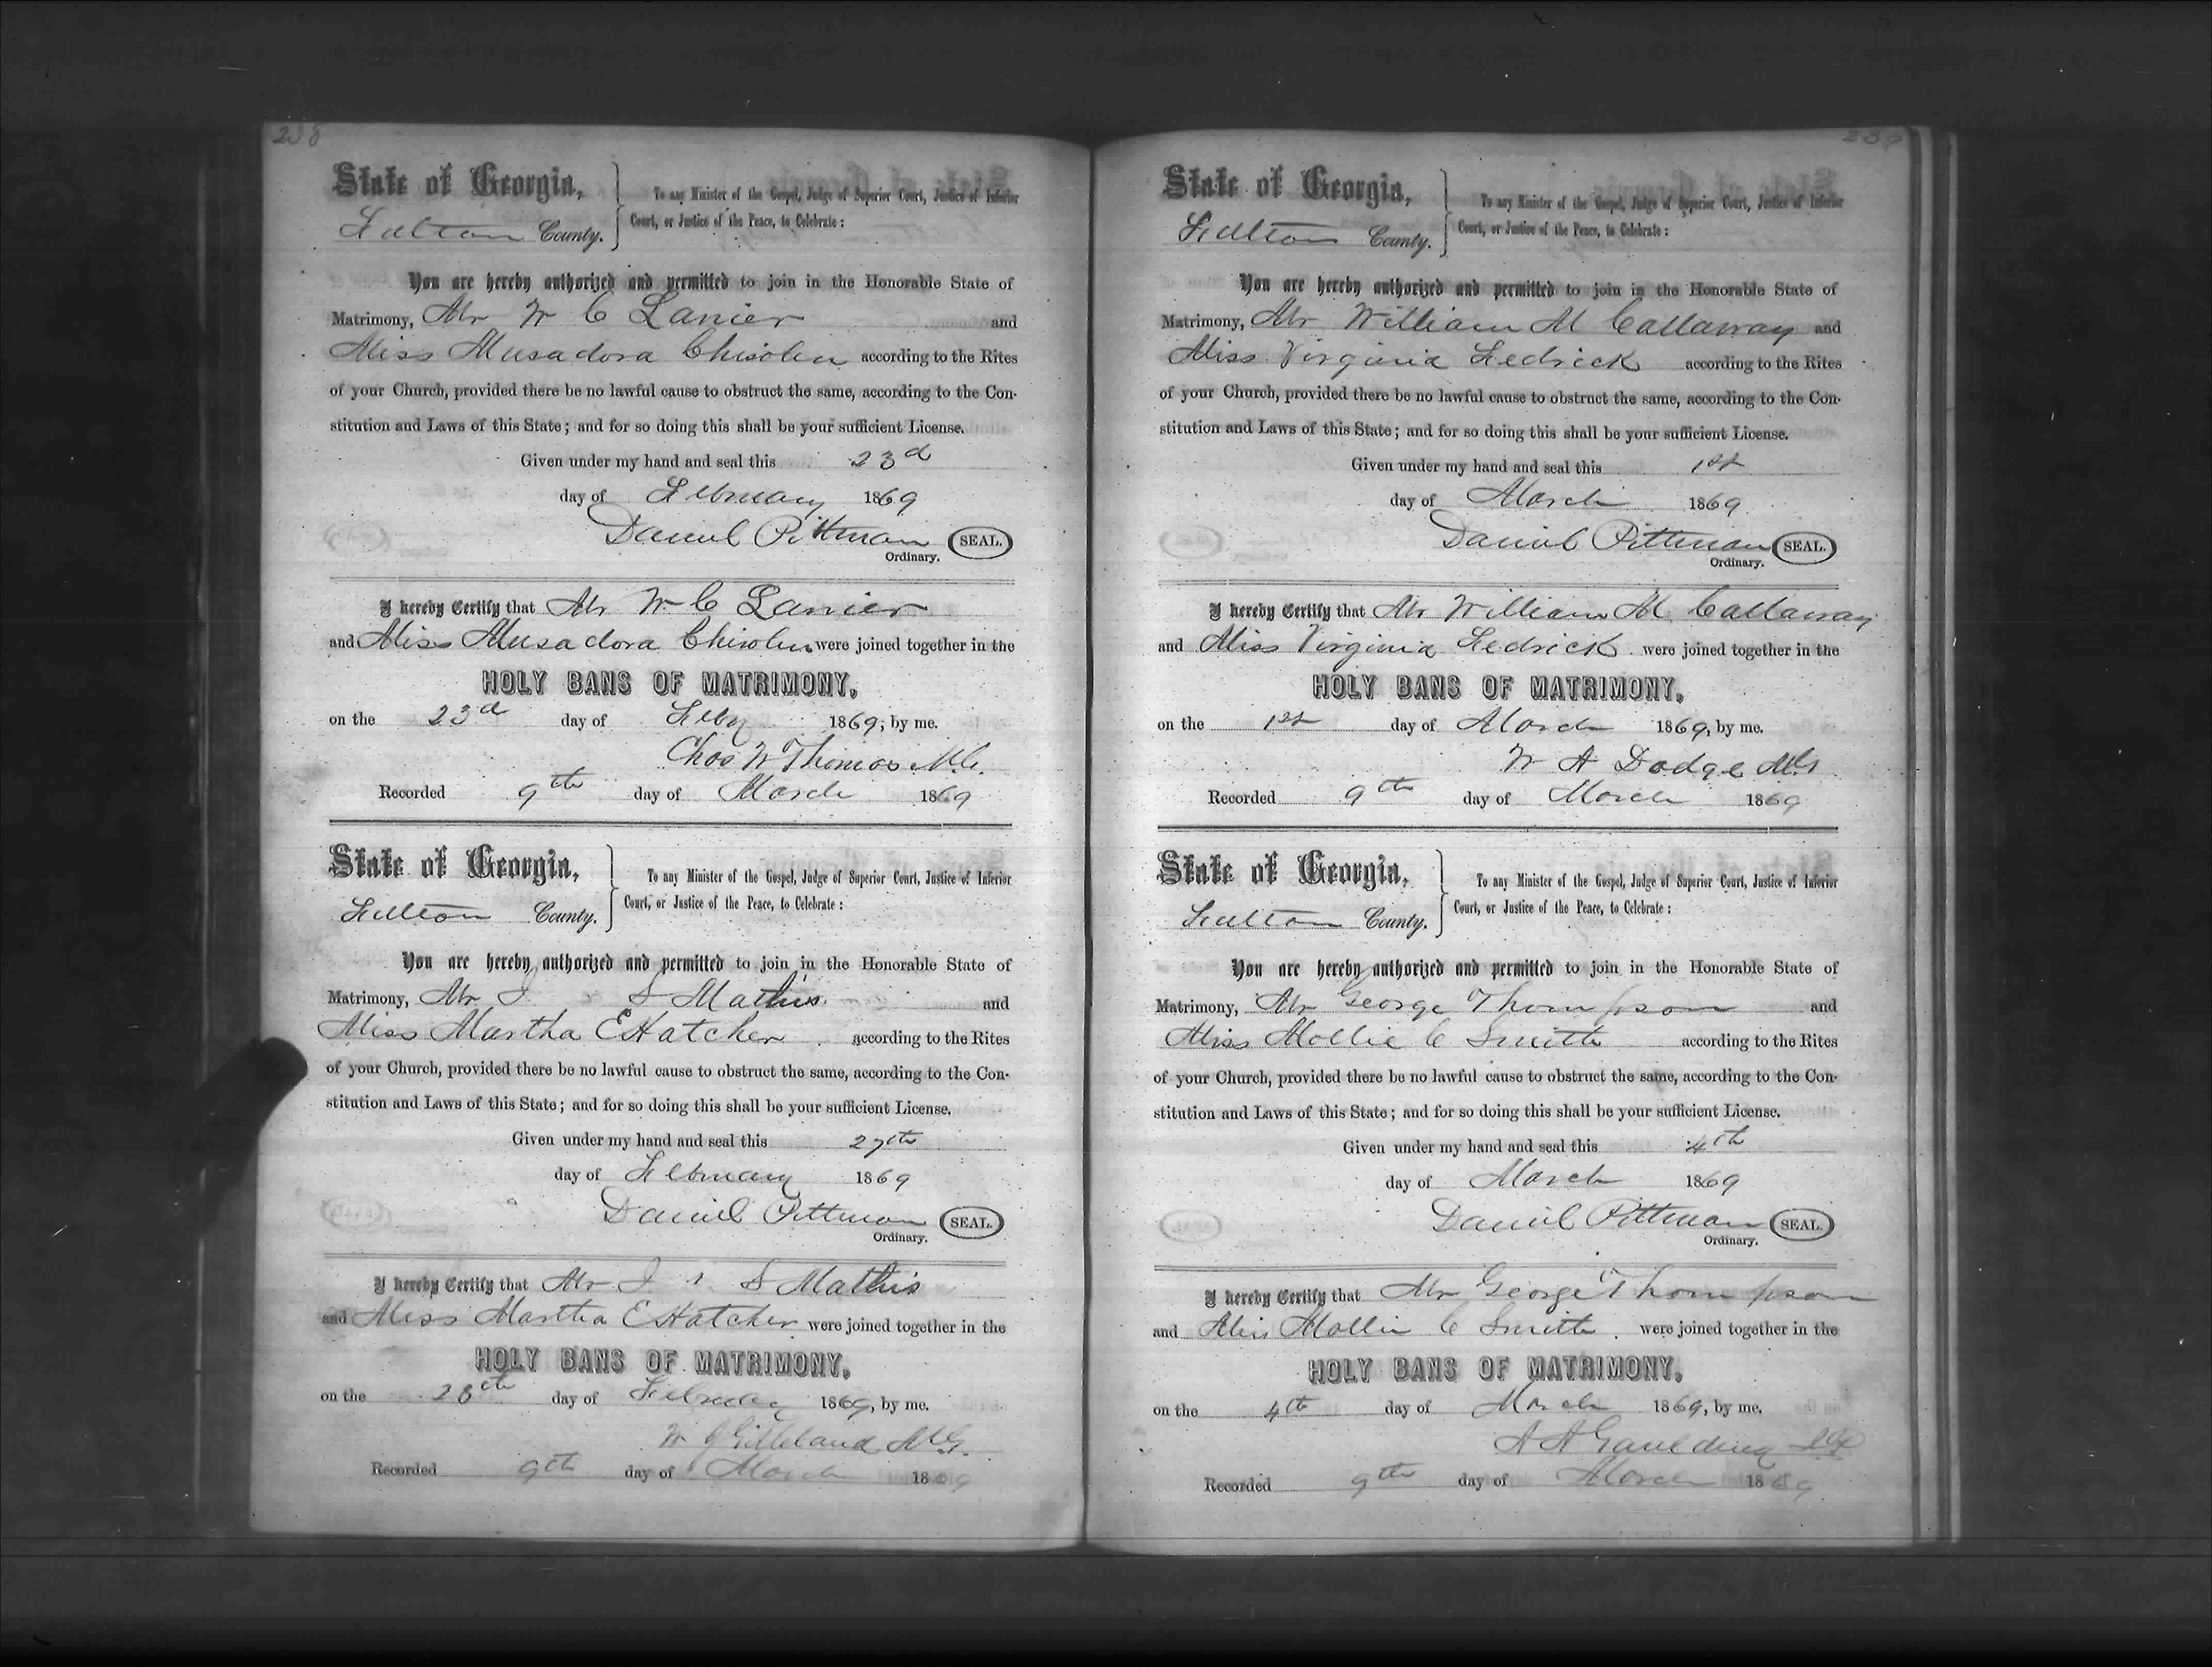 238
State of Georgia,
Fulton County.
To any Minister of the Gospel, Judge of Superior Court, Justice of Inferior
Court, or Justice of the Peace, to Celebrate:
You are hereby authorized and permitted to join in the Honorable State of
Matrimony, Mr W C Lanier and
Miss Musadora Chisolm according to the Rites
of your Church, provided there be no lawful cause to obstruct the same, according to the Con-
stitution and Laws of this State; and for so doing this shall be your sufficient License.
Given under my hand and seal this 23d
day of February 1869
Daniel Pittman SEAL.
Ordinary.
I hereby Certify that Mr W C Lanier
and Miss Musadora Chisolm were joined together in the
HOLY BANS OF MATRIMONY,
on the 23d day of Feby 1869, by me.
Chas W Thomas M.G.
Recorded 9th day of March 1869
State of Georgia,
Fulton County.
To any Minister of the Gospel, Judge of Superior Court, Justice of Inferior
Court, or Justice of the Peace, to Celebrate:
You are hereby authorized and permitted to join in the Honorable State of
Matrimony, Mr J S Mathis and
Miss Martha E Hatcher according to the Rites
of your Church, provided there be no lawful cause to obstruct the same, according to the Con-
stitution and Laws of this State; and for so doing this shall be your sufficient License.
Given under my hand and seal this 27th
day of February 1869
Daniel Pittman SEAL.
Ordinary.
I hereby Certify that Mr J S Mathis
and Miss Martha E Hatcher were joined together in the
HOLY BANS OF MATRIMONY,
on the 28th day of February 1869, by me.
W J Gilleland M.G.
Recorded 9th day of March 1869
239
State of Georgia,
Fulton County.
To any Minister of the Gospel, Judge of Superior Court, Justice of Inferior
Court, or Justice of the Peace, to Celebrate:
You are hereby authorized and permitted to join in the Honorable State of
Matrimony, Mr William M Callaway and
Miss Virginia Fedrick according to the Rites
of your Church, provided there be no lawful cause to obstruct the same, according to the Con-
stitution and Laws of this State; and for so doing this shall be your sufficient License.
Given under my hand and seal this 1st
day of March 1869
Daniel Pittman SEAL.
Ordinary.
I hereby Certify that Mr William M Callaway
and Miss Virginia Fedrick were joined together in the
HOLY BANS OF MATRIMONY,
on the 1st day of March 1869, by me.
W A Dodge MG
Recorded 9th day of March 1869
State of Georgia,
Fulton County.
To any Minister of the Gospel, Judge of Superior Court, Justice of Inferior
Court, or Justice of the Peace, to Celebrate:
You are hereby authorized and permitted to join in the Honorable State of
Matrimony, Mr George Thompson and
Miss Mollie C Smith according to the Rites
of your Church, provided there be no lawful cause to obstruct the same, according to the Con-
stitution and Laws of this State; and for so doing this shall be your sufficient License.
Given under my hand and seal this 4th
day of March 1869
Daniel Pittman SEAL.
Ordinary.
I hereby Certify that Mr George Thompson
and Miss Mollie C Smith were joined together in the
HOLY BANS OF MATRIMONY,
on the 4th day of March 1869, by me.
A A Gaulding
Recorded 9th day of March 1869